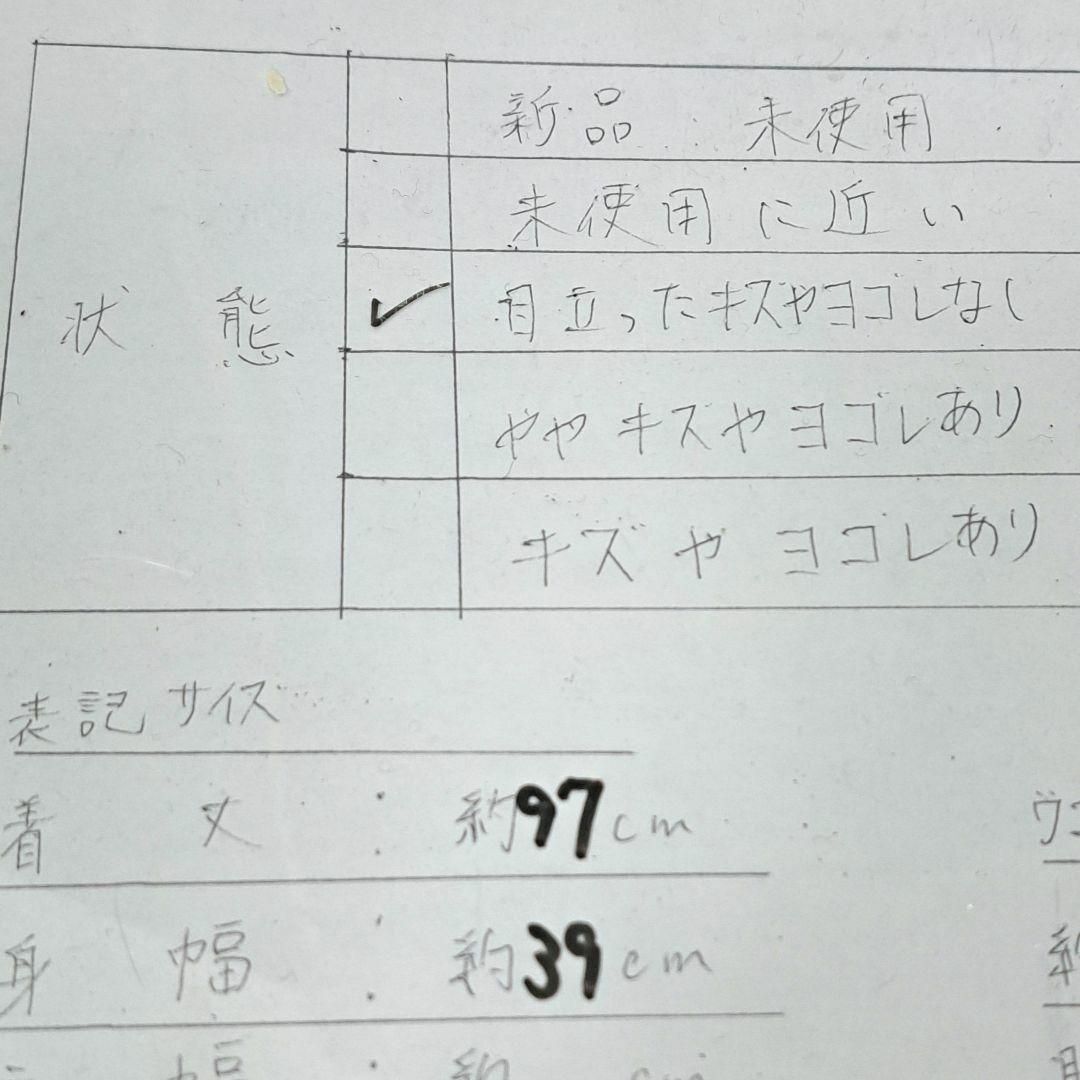 新品 未使用
未使用に近い
状態
✓ 目立ったキズやヨゴレなし
ややキズやヨゴレあり
キズやヨゴレあり
表記サイズ
着丈 : 約97cm
身幅 : 約39cm
幅 : 約 cm